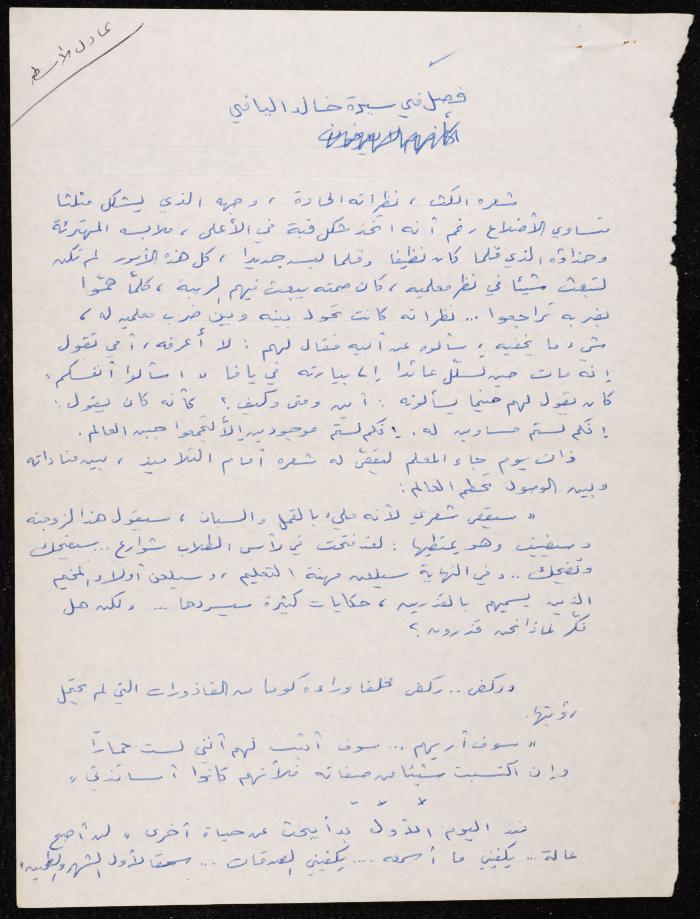 عادل الأسطة
فصل في سيرة خالد اليافي
شعره الكث ، نظراته الحادة ، وجهه الذي يشكل مثلثا
متساوي الأضلاع رغم أنه اتخذ شكل قبة في الأعلى ، ملابسه المهترئة
وحذاؤه الذي قلما كان نظيفا وقلما لبسه جديدا ، كل هذه الأمور لم تكن
لتبعث شيئا في نظر معلميه ، كان صمته يبعث فيهم الريبة ، كلما همّوا
بضربه تراجعوا ... نظراته كانت تحول بينه وبين ضرب معلميه له ،
شيء ما يخفيه ، سألوه عن أبيه فقال لهم : لا أعرفه ، أمي تقول
إنه مات حين تسلّل عائدا إلى بيارته في يافا " اسألوا أنفسكم "
كان يقول لهم حينما يسألونه : أين ومتى وكيف ؟ كأنه كان يقول :
إنكم لستم مساوين له . إنكم لستم موجودين إلا لتجمعوا حبن العالم .
ذات يوم جاء المعلم ليقص له شعره أمام التلاميذ ، بين مناداته
وبين الوصول تحطم العالم :
" سيقص شعري لأنه مليء بالقمل والسبان ، سيقول هذا لزوجته
وسيضيف وهو يمتطها : لقد فتحت في رأس الطلاب شوارع .. سيضحك
وتضحك .. وفي النهاية سيلعن مهنة التعليم ، وسيلعن أولاد المخيم
الذين يسميهم بالقذرين ، حكايات كثيرة سيسردها ... ولكن هل
فكّر لماذا نحن قذرون ؟
وركض .. ركض مخلفا وراءه كوما من القاذورات التي لم يحتمل
رؤيتها .
" سوف أريهم ... سوف أثبت لهم أنني لست حمارًا
وإن اكتسبت شيئا من صفاته فلأنهم كانوا أساتذتي "
منذ اليوم الأول بدأ يبحث عن حياة أخرى " لن أصبح
عالة ... يكفيني ما أسمعه .... يكفيني الصدقات ... سحقا لأول الشهر والطحين "